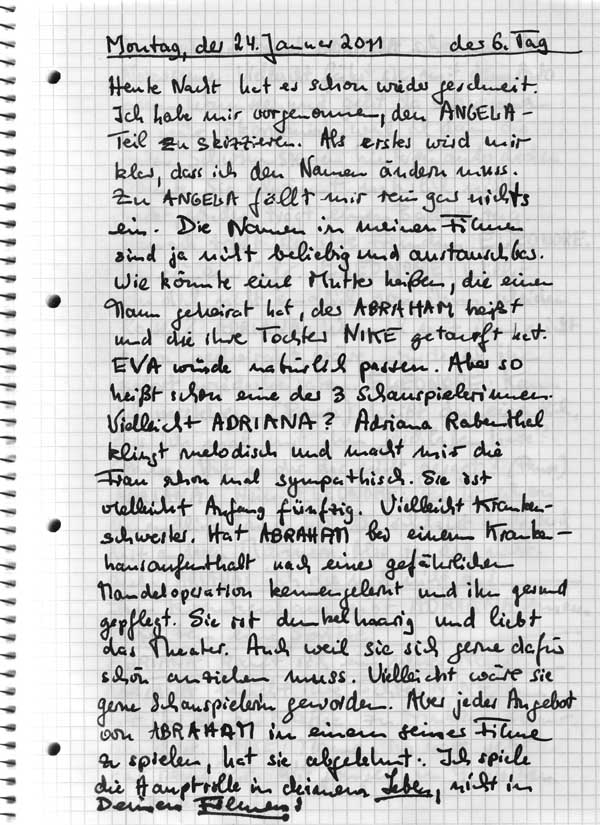 Montag, der 24. Januar 2011 des 6. Tag
Heute Nacht hat es schon wieder geschneit.
Ich habe mir vorgenommen, den ANGELA-
Teil zu skizzieren. Als erstes wird mir
klar, dass ich den Namen ändern muss.
Zu ANGELA fällt mir rein gar nichts
ein. Die Namen in meinen Filmen
sind ja nicht beliebig und austauschbar.
Wie könnte eine Mutter heißen, die einen
Mann geheirat hat, der ABRAHAM heißt
und die ihre Tochter NIKE getauft hat.
EVA würde natürlich passen. Aber so
heißt schon eine der 3 Schauspielerinnen.
Vielleicht ADRIANA? Adriana Rabenthal
klingt melodisch und macht mir die
Frau schon mal sympathisch. Sie ist
vielleicht Anfang fünfzig. Vielleicht Kranken-
schwester. Hat ABRAHAM bei einem Kranken-
hausaufenthalt nach einer gefährlichen
Mandeloperation kennengelernt und ihn gesund
gepflegt. Sie ist dunkelhaarig und liebt
das Theater. Auch weil sie sich gerne dafür
schön anziehen muss. Vielleicht wäre sie
gerne Schauspielerin geworden. Aber jedes Angebot
von ABRAHAM in einem seiner Filme
zu spielen, hat sie abgelehnt. Ich spiele
die Hauptrolle in deinem Leben, nicht in
Deinen Filmen!